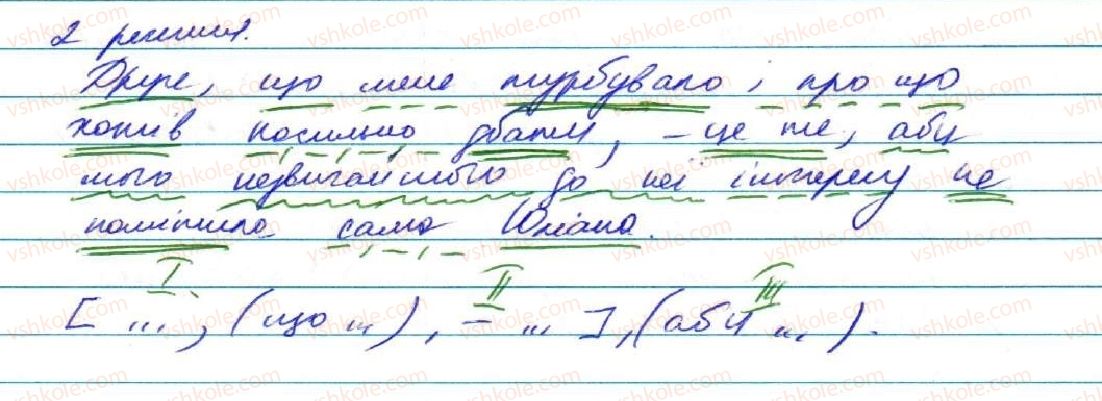 2 речення.
Друге, що мене турбувало і про що
хотів посильно дбати, – це те, аби
мого незвичайного до неї інтересу не
помітила сама Юліана.
I II III
[ ... , (що ... ) , – ... ] , (аби ... ) .